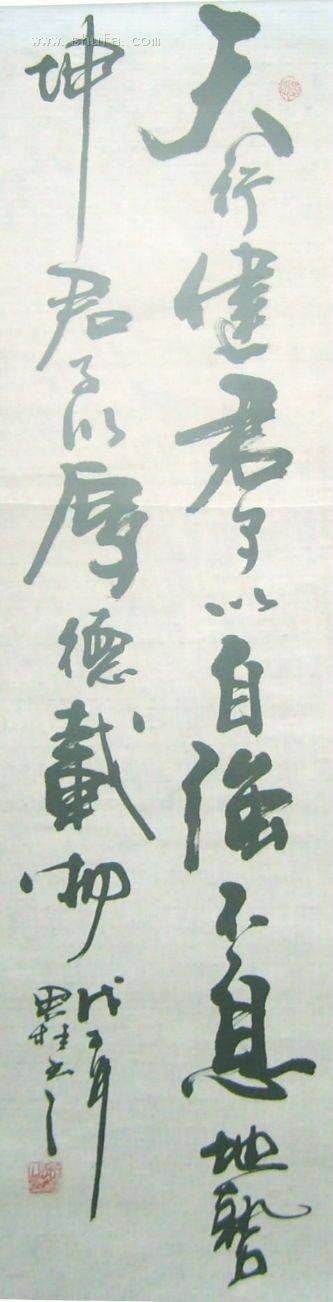 天行健君子以自强不息地势
坤君子以厚德载物
戊子年
www.shufa.com